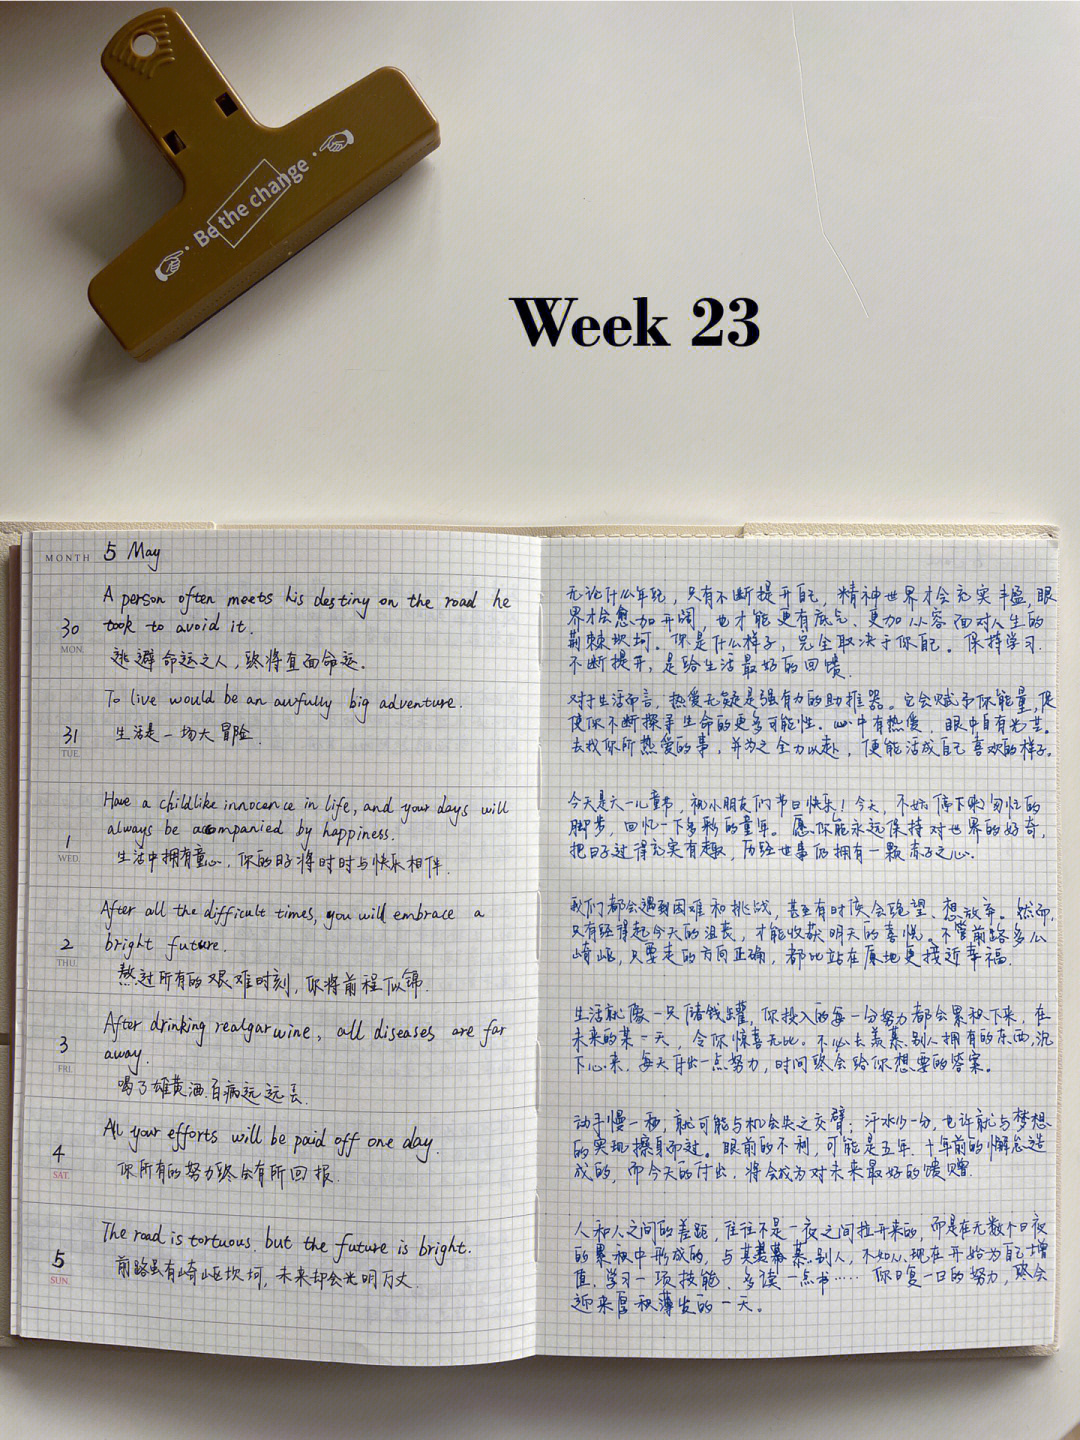 Be the change
Week 23
MONTH 5 May
A person often meets his destiny on the road he
took to avoid it.
30
MON.
逃避命运之人，终将直面命运。
To live would be an awfully big adventure.
31
TUE.
生活是一场大冒险
Have a childlike innocence in life, and your days will
always be accompanied by happiness.
1
WED.
生活中拥有童心，你的日子将时时与快乐相伴.
After all the difficult times, you will embrace a
bright future.
2
THU.
熬过所有的艰难时刻，你将前程似锦.
After drinking realgar wine, all diseases are far
away.
3
FRI.
喝了雄黄酒.百病远远丢.
All your efforts will be paid off one day.
4
SAT.
你所有的努力终会有所回报.
The road is tortuous, but the future is bright.
5
SUN.
前路虽有崎岖坎坷，未来却会光明万丈.
无论什么年纪，只有不断提升自己，精神世界才会充实丰盈，眼
界才会愈加开阔，也才能更有底气、更加从容面对人生的
荆棘坎坷。你是什么样子，完全取决于你自己。保持学习.
不断提升，是给生活最好的回馈.
对于生活而言，热爱无疑是强有力的助推器。它会赋予你能量，促
使你不断探寻生命的更多可能性。心中有热爱，眼中自有光芒。
去找你所热爱的事，并为之全力以赴，便能活成自己喜欢的样子。
今天是六一儿童节，祝小朋友们节日快乐！今天，不妨停下来匆忙的
脚步，回忆一下多彩的童年。愿你能永远保持对世界的好奇，
把日子过得充实有趣，历经世事仍拥有一颗赤子之心.
我们都会遇到困难和挑战，甚至有时候会绝望、想放弃。然而，
只有经得起今天的沮丧，才能收获明天的喜悦。不管前路多么
崎岖，只要走的方向正确，都比站在原地更接近幸福.
生活就像一只储钱罐，你投入的每一分努力都会累积下来，在
未来的某一天，令你惊喜无比。不必去羡慕别人拥有的东西，沉
下心来，每天付出一点努力，时间终会给你想要的答案。
动手慢一秒，就可能与机会失之交臂；汗水少一分，也许就与梦想
的实现擦身而过。眼前的不利，可能是五年、十年前的懈怠造
成的，而今天的付出，将会成为对未来最好的馈赠.
人和人之间的差距，往往不是一夜之间拉开来的，而是在无数个日夜
的累积中形成的，与其羡慕别人，不如从现在开始为自己增
值、学习一项技能、多读一点书……你日复一日的努力，终会
迎来厚积薄发的一天。